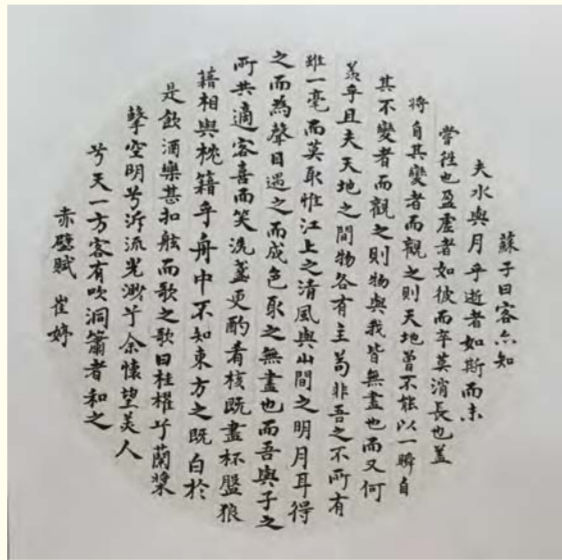 蘇子曰客亦知
夫水與月乎逝者如斯而未
嘗往也盈虛者如彼而卒莫消長也蓋
將自其變者而觀之則天地曾不能以一瞬自
其不變者而觀之則物與我皆無盡也而又何
羨乎且夫天地之間物各有主苟非吾之不所有
雖一毫而莫取惟江上之清風與山間之明月耳得
之而為聲目遇之而成色取之無盡也而吾與子之
所共適客喜而笑洗盞更酌肴核既盡杯盤狼
藉相與枕籍乎舟中不知東方之既白於
是飲酒樂甚扣舷而歌之歌曰桂櫂兮蘭槳
擊空明兮泝流光渺兮余懷望美人
兮天一方客有吹洞簫者和之
赤壁賦 崔婷